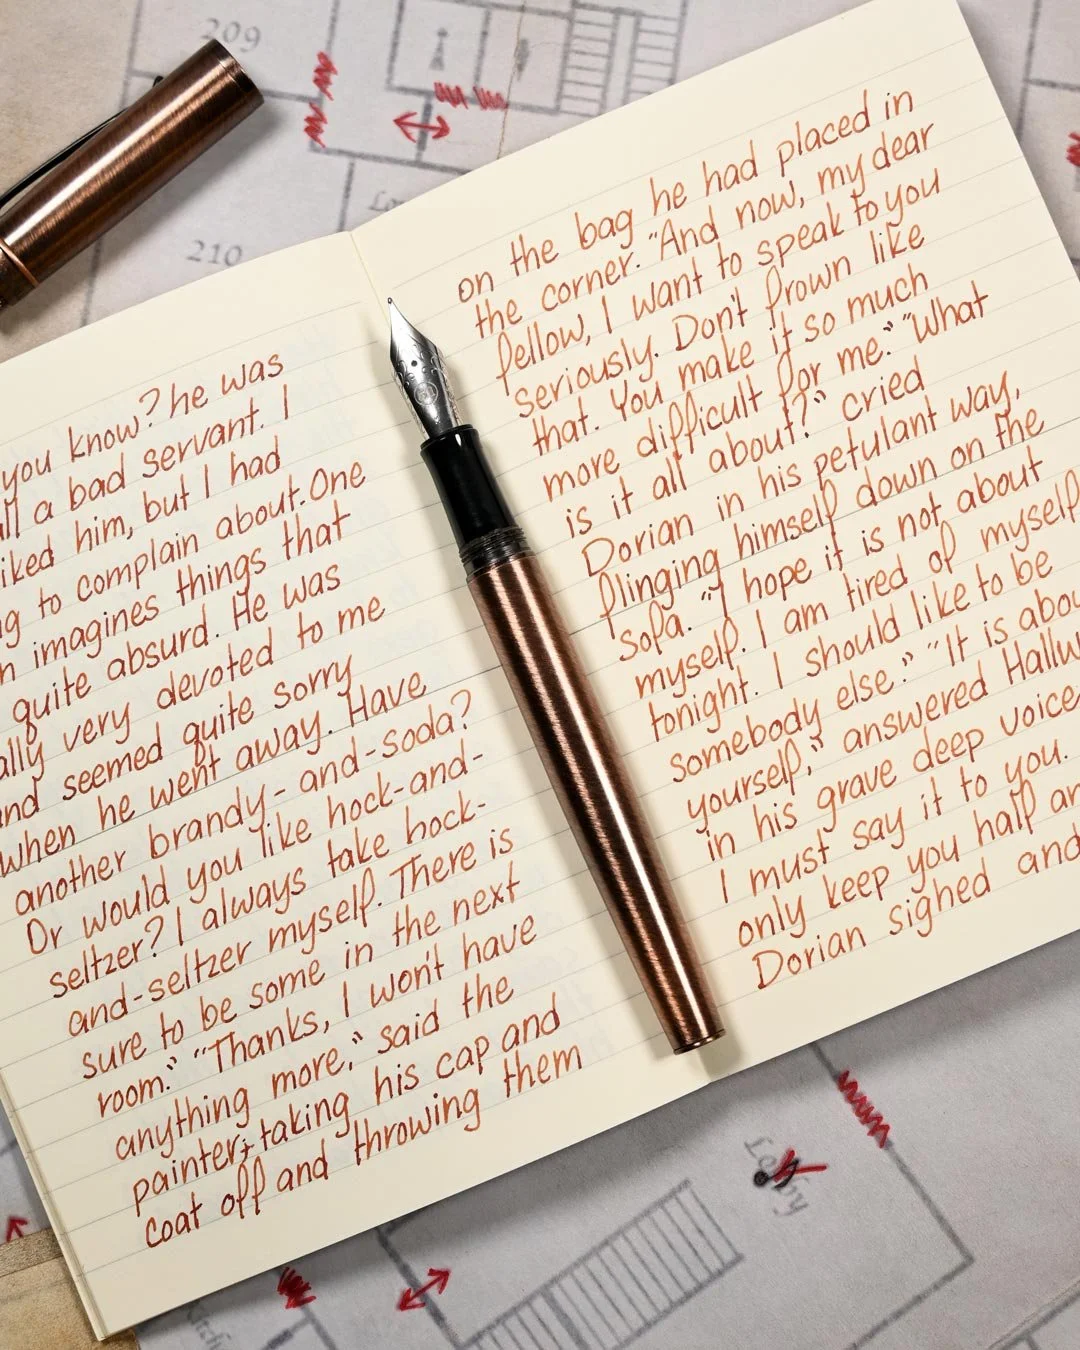 209
210
you know? he was
a bad servant. I
him, but I had
to complain about. One
imagines things that
quite absurd. He was
very devoted to me
seemed quite sorry
when he went away. Have
another brandy-and-soda?
Or would you like hock-and-
seltzer? I always take hock-
and-seltzer myself. There is
sure to be some in the next
room." "Thanks, I won't have
anything more," said the
painter, taking his cap and
coat off and throwing them
on the bag he had placed in
the corner. "And now, my dear
fellow, I want to speak to you
seriously. Don't frown like
that. You make it so much
more difficult for me." "What
is it all about?" cried
Dorian in his petulant way,
flinging himself down on the
sofa. "I hope it is not about
myself. I am tired of myself
tonight. I should like to be
somebody else." "It is
yourself," answered
in his grave deep voice
I must say it to you.
only keep you half
Dorian sighed and
Lobby